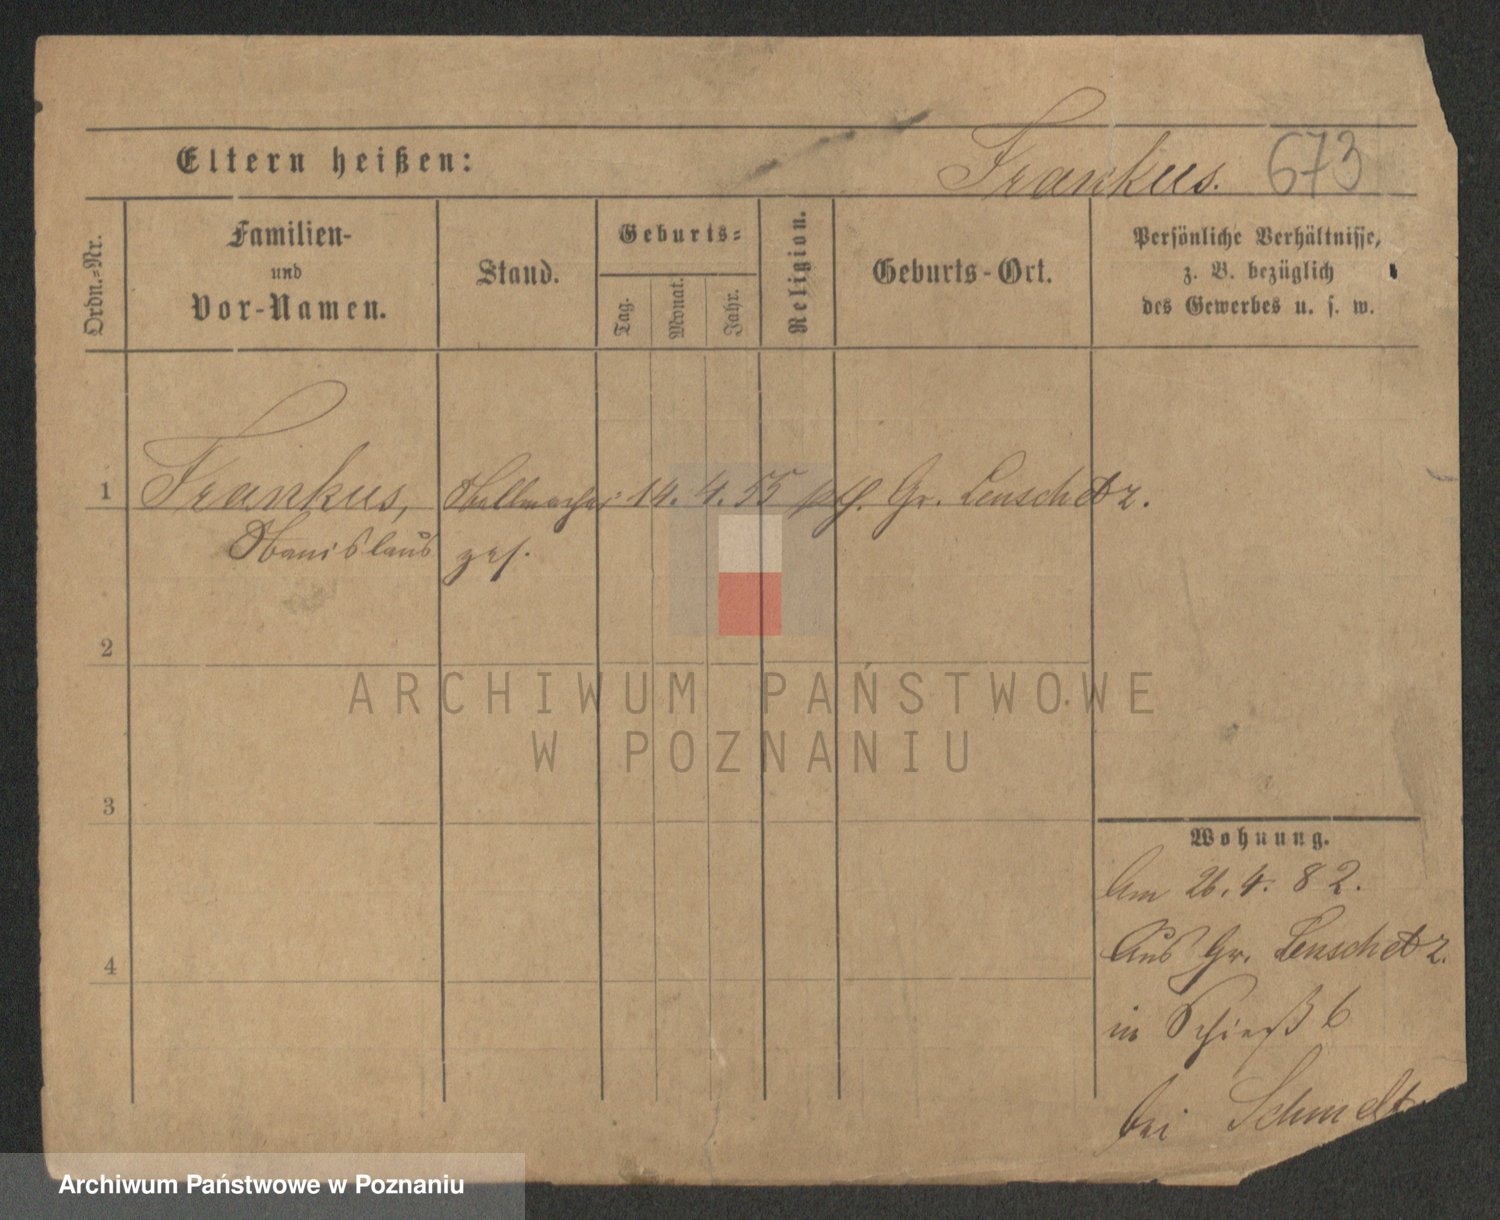 Eltern heißen:
Frankus. 673
Ordn.-Nr.
Familien-
und
Vor-Namen.
Stand.
Geburts-
Tag.
Monat.
Jahr.
Religion.
Geburts-Ort.
Persönliche Verhältnisse,
z. B. bezüglich
des Gewerbes u. s. w.
1 Frankus, Stellmacher 14. 4. 55 Gr. Lenschetz.
Stanislaus ges.
2
3
4
Wohnung.
Am 26. 4. 82.
Aus Gr. Lenschetz.
in Schieß 6
bei
ARCHIWUM PAŃSTWOWE
W POZNANIU
Archiwum Państwowe w Poznaniu